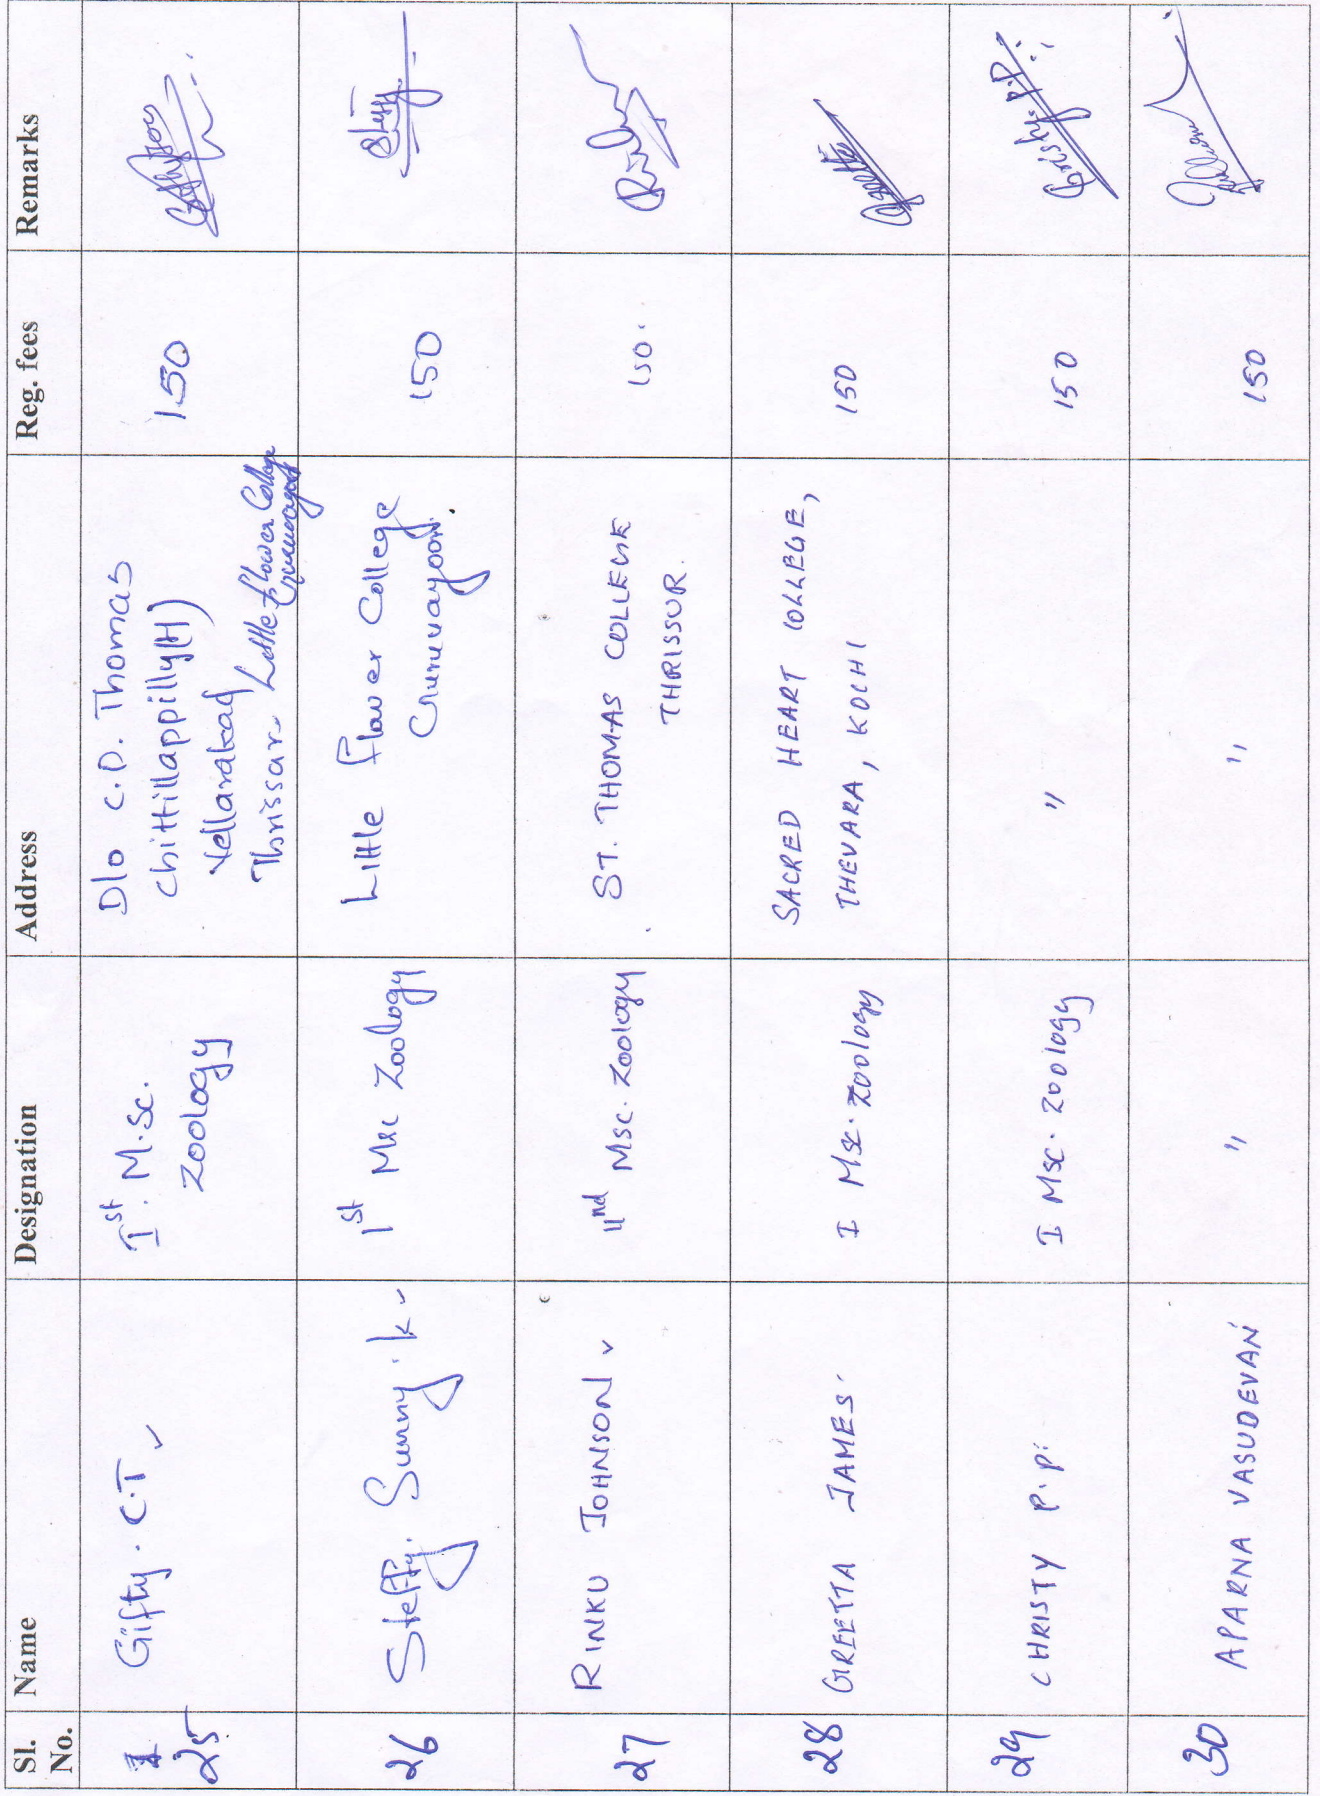 Sl. No. Name Designation Address Reg. fees Remarks
25 Gifty. C.T Ist. M.Sc. Zoology D/o C.D. Thomas 150
Chittillappilly(H)
Vellarakad
Thrissur Little Flower College
Guruvayoor
26 Steffy. Sunny. K 1st Msc Zoology Little Flower College 150 Steffy
Guruvayoor.
27 RINKU JOHNSON IInd Msc. Zoology ST. THOMAS COLLEGE 150.
THRISSUR.
28 GREETTA JAMES I Msc. Zoology SACRED HEART COLLEGE, 150 Greetta
THEVARA, KOCHI
29 CHRISTY P.P. I Msc. Zoology " 150 Christy. P.P
30 APARNA VASUDEVAN " " 150